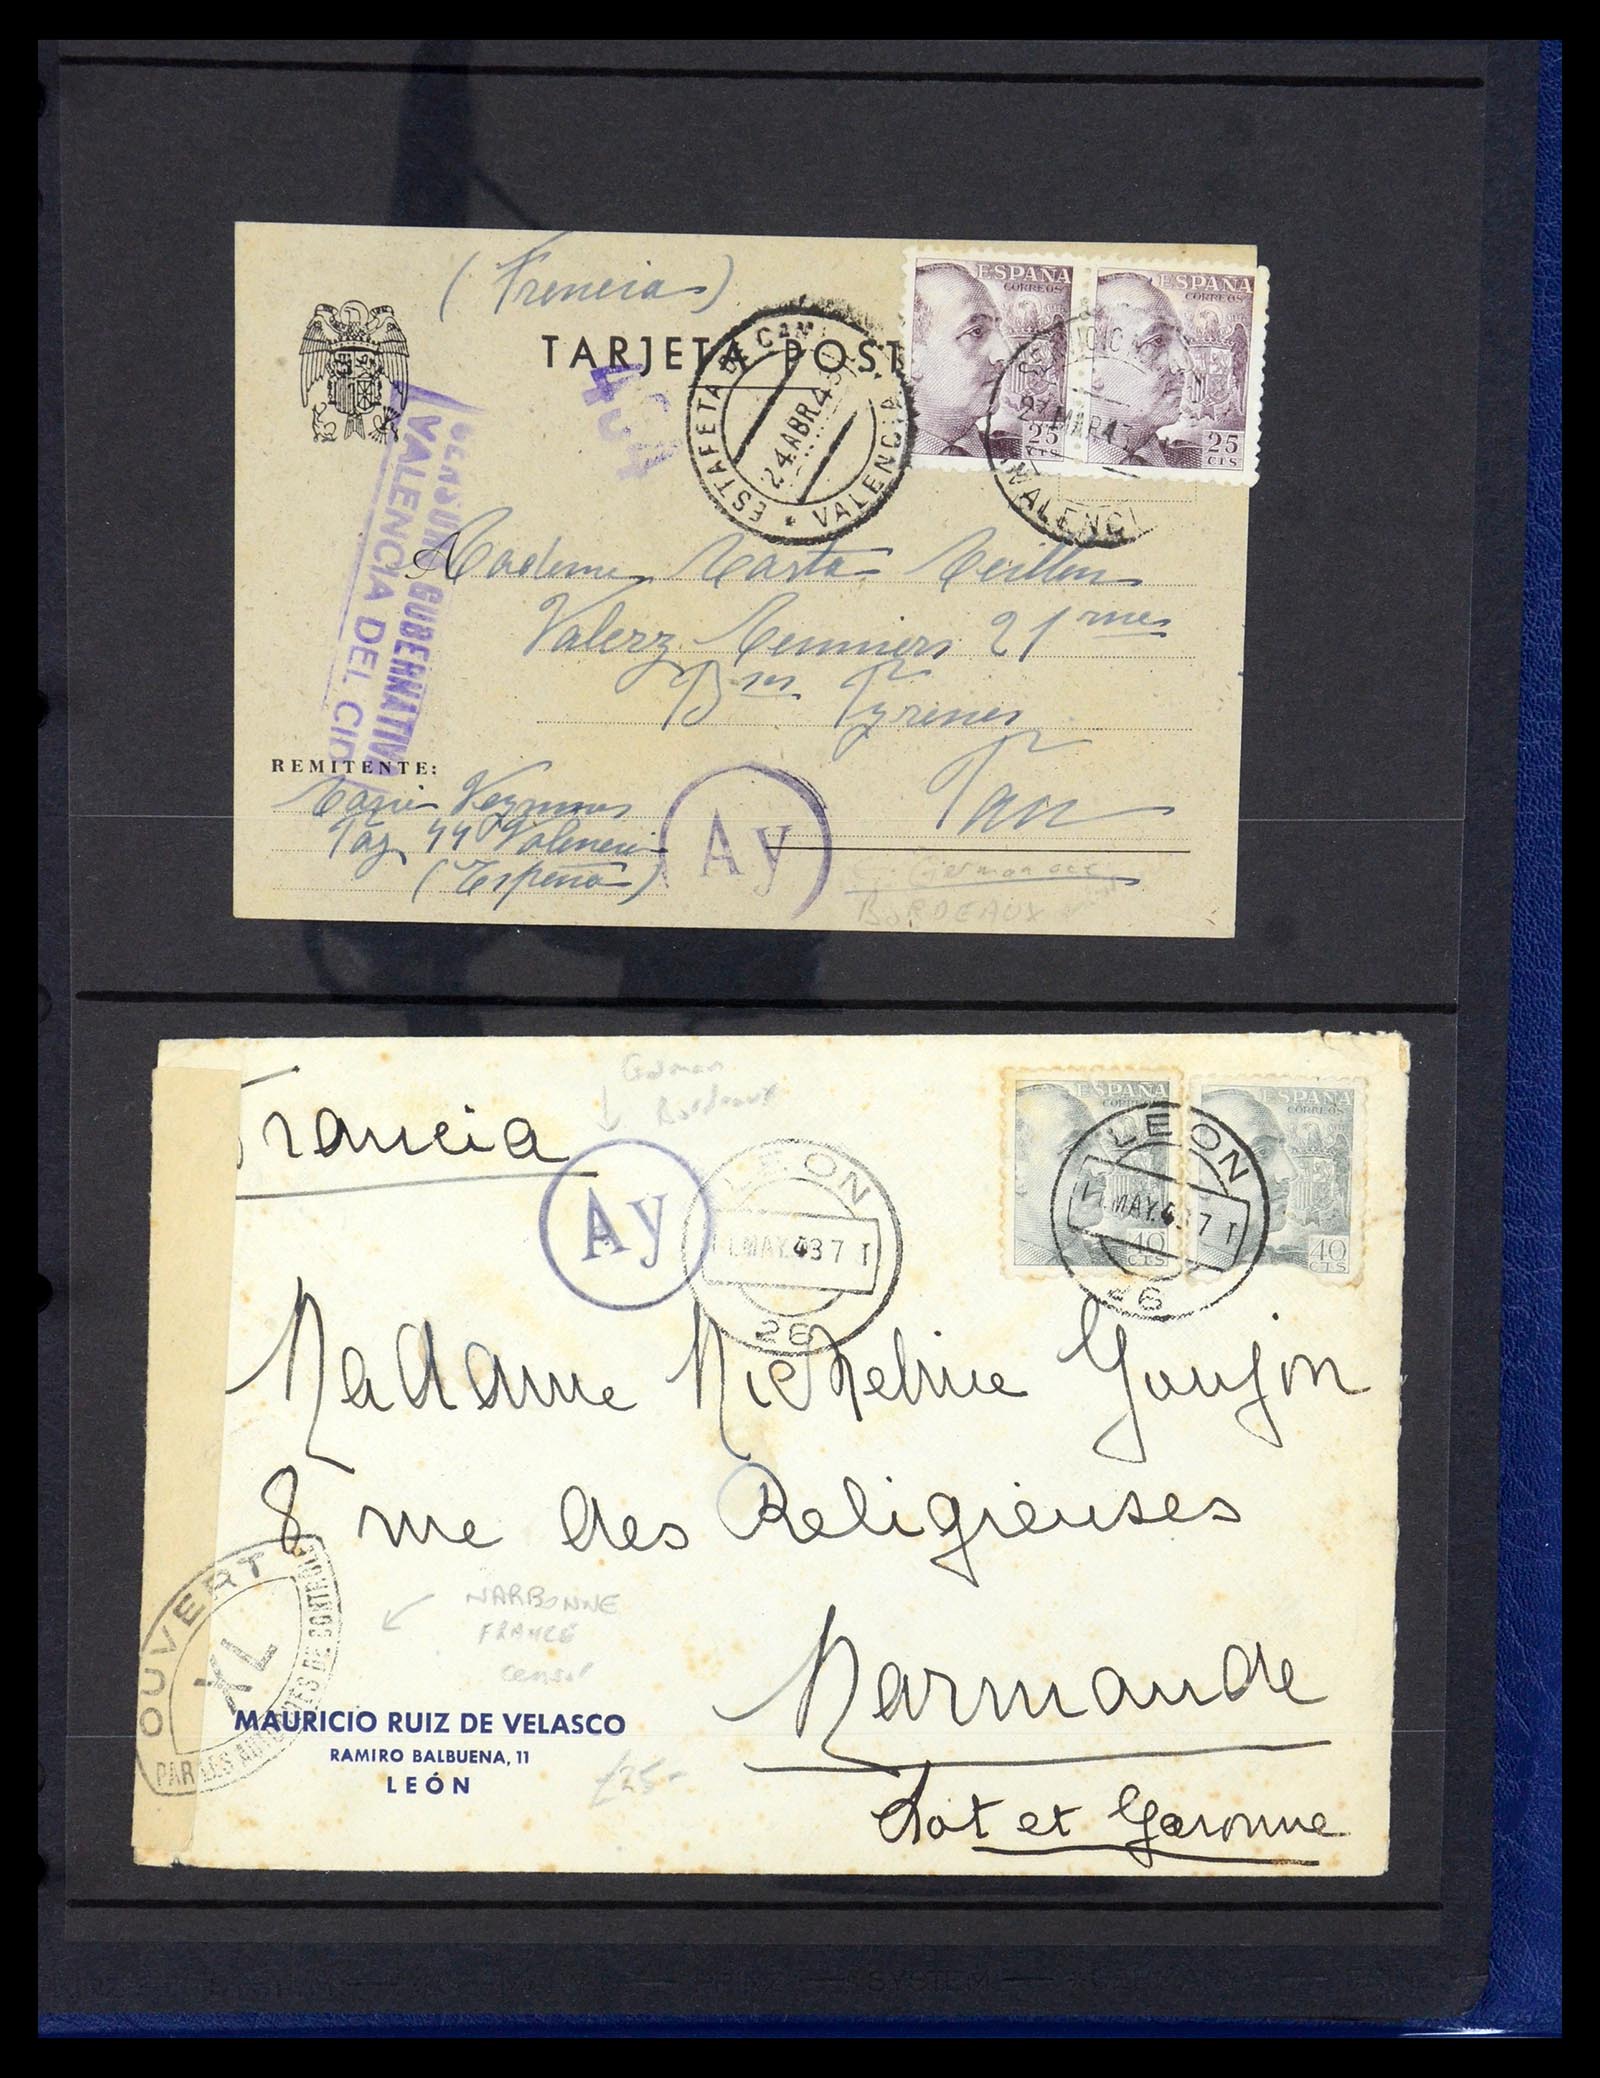 (Francia)
TARJETA POST
ESPAÑA
CORREOS
25
CTS
ESPAÑA
CORREOS
25
CTS
ESTAFETA DE
24 ABR 43
VALENCIA
VALENCI
CENSURA GUBERNATIVA
VALENCIA DEL CID
Madame Marta
21
Bses Pyrénés
Pau
REMITENTE:
44 Valencia
(España)
Ay
German
BORDEAUX
German
Bordeaux
Francia
Ay
LEON
MAY.43 7 T
26
ESPAÑA
CORREOS
40
CTS
ESPAÑA
CORREOS
40
CTS
LEON
MAY.43 7 T
26
Madame Micheline Goujon
8 rue des Religieuses
NARBONNE
FRANCE
censor
OUVERT
XL
PAR LES AUTORITES DE CONTROLE
Marmande
Lot et Garonne
MAURICIO RUIZ DE VELASCO
RAMIRO BALBUENA, 11
LEÓN
£25-
SYSTEM